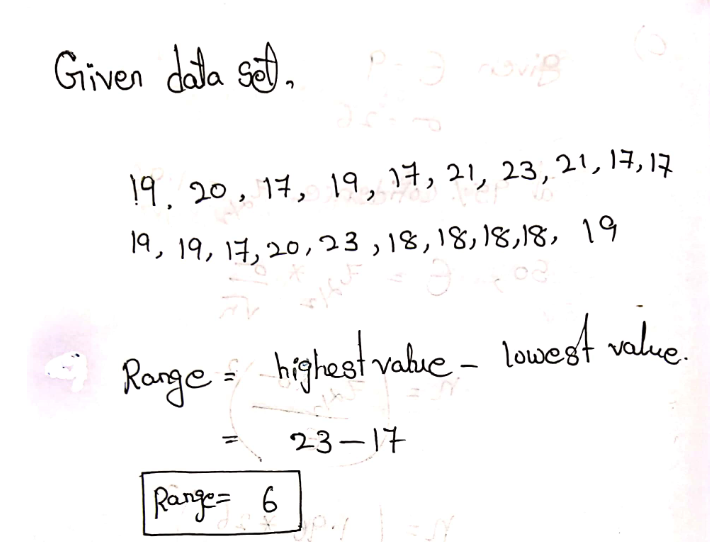 Given data set,
19, 20, 17, 19, 17, 21, 23, 21, 17, 17
19, 19, 17, 20, 23, 18, 18, 18, 18, 19
Range = highest value - lowest value.
= 23-17
Range= 6